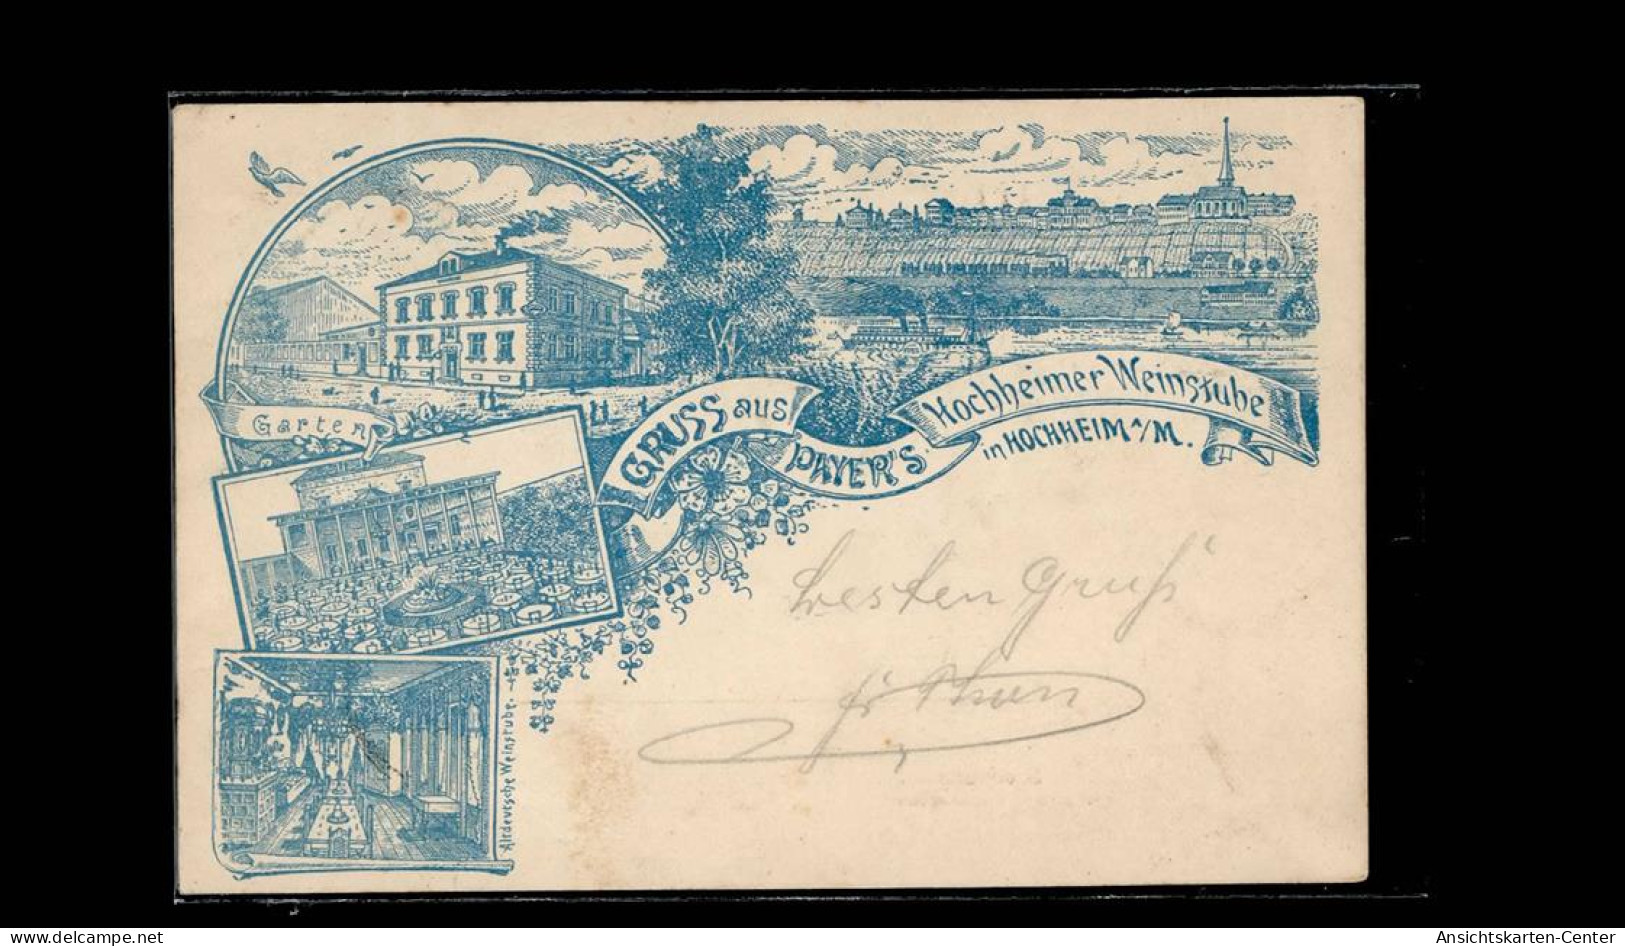 Garten
GRUSS aus
PAYER'S
Hochheimer Weinstube
in HOCHHEIM A/M.
Altdeutsche Weinstube.
besten Gruß
delcampe.net
Ansichtskarten-Center